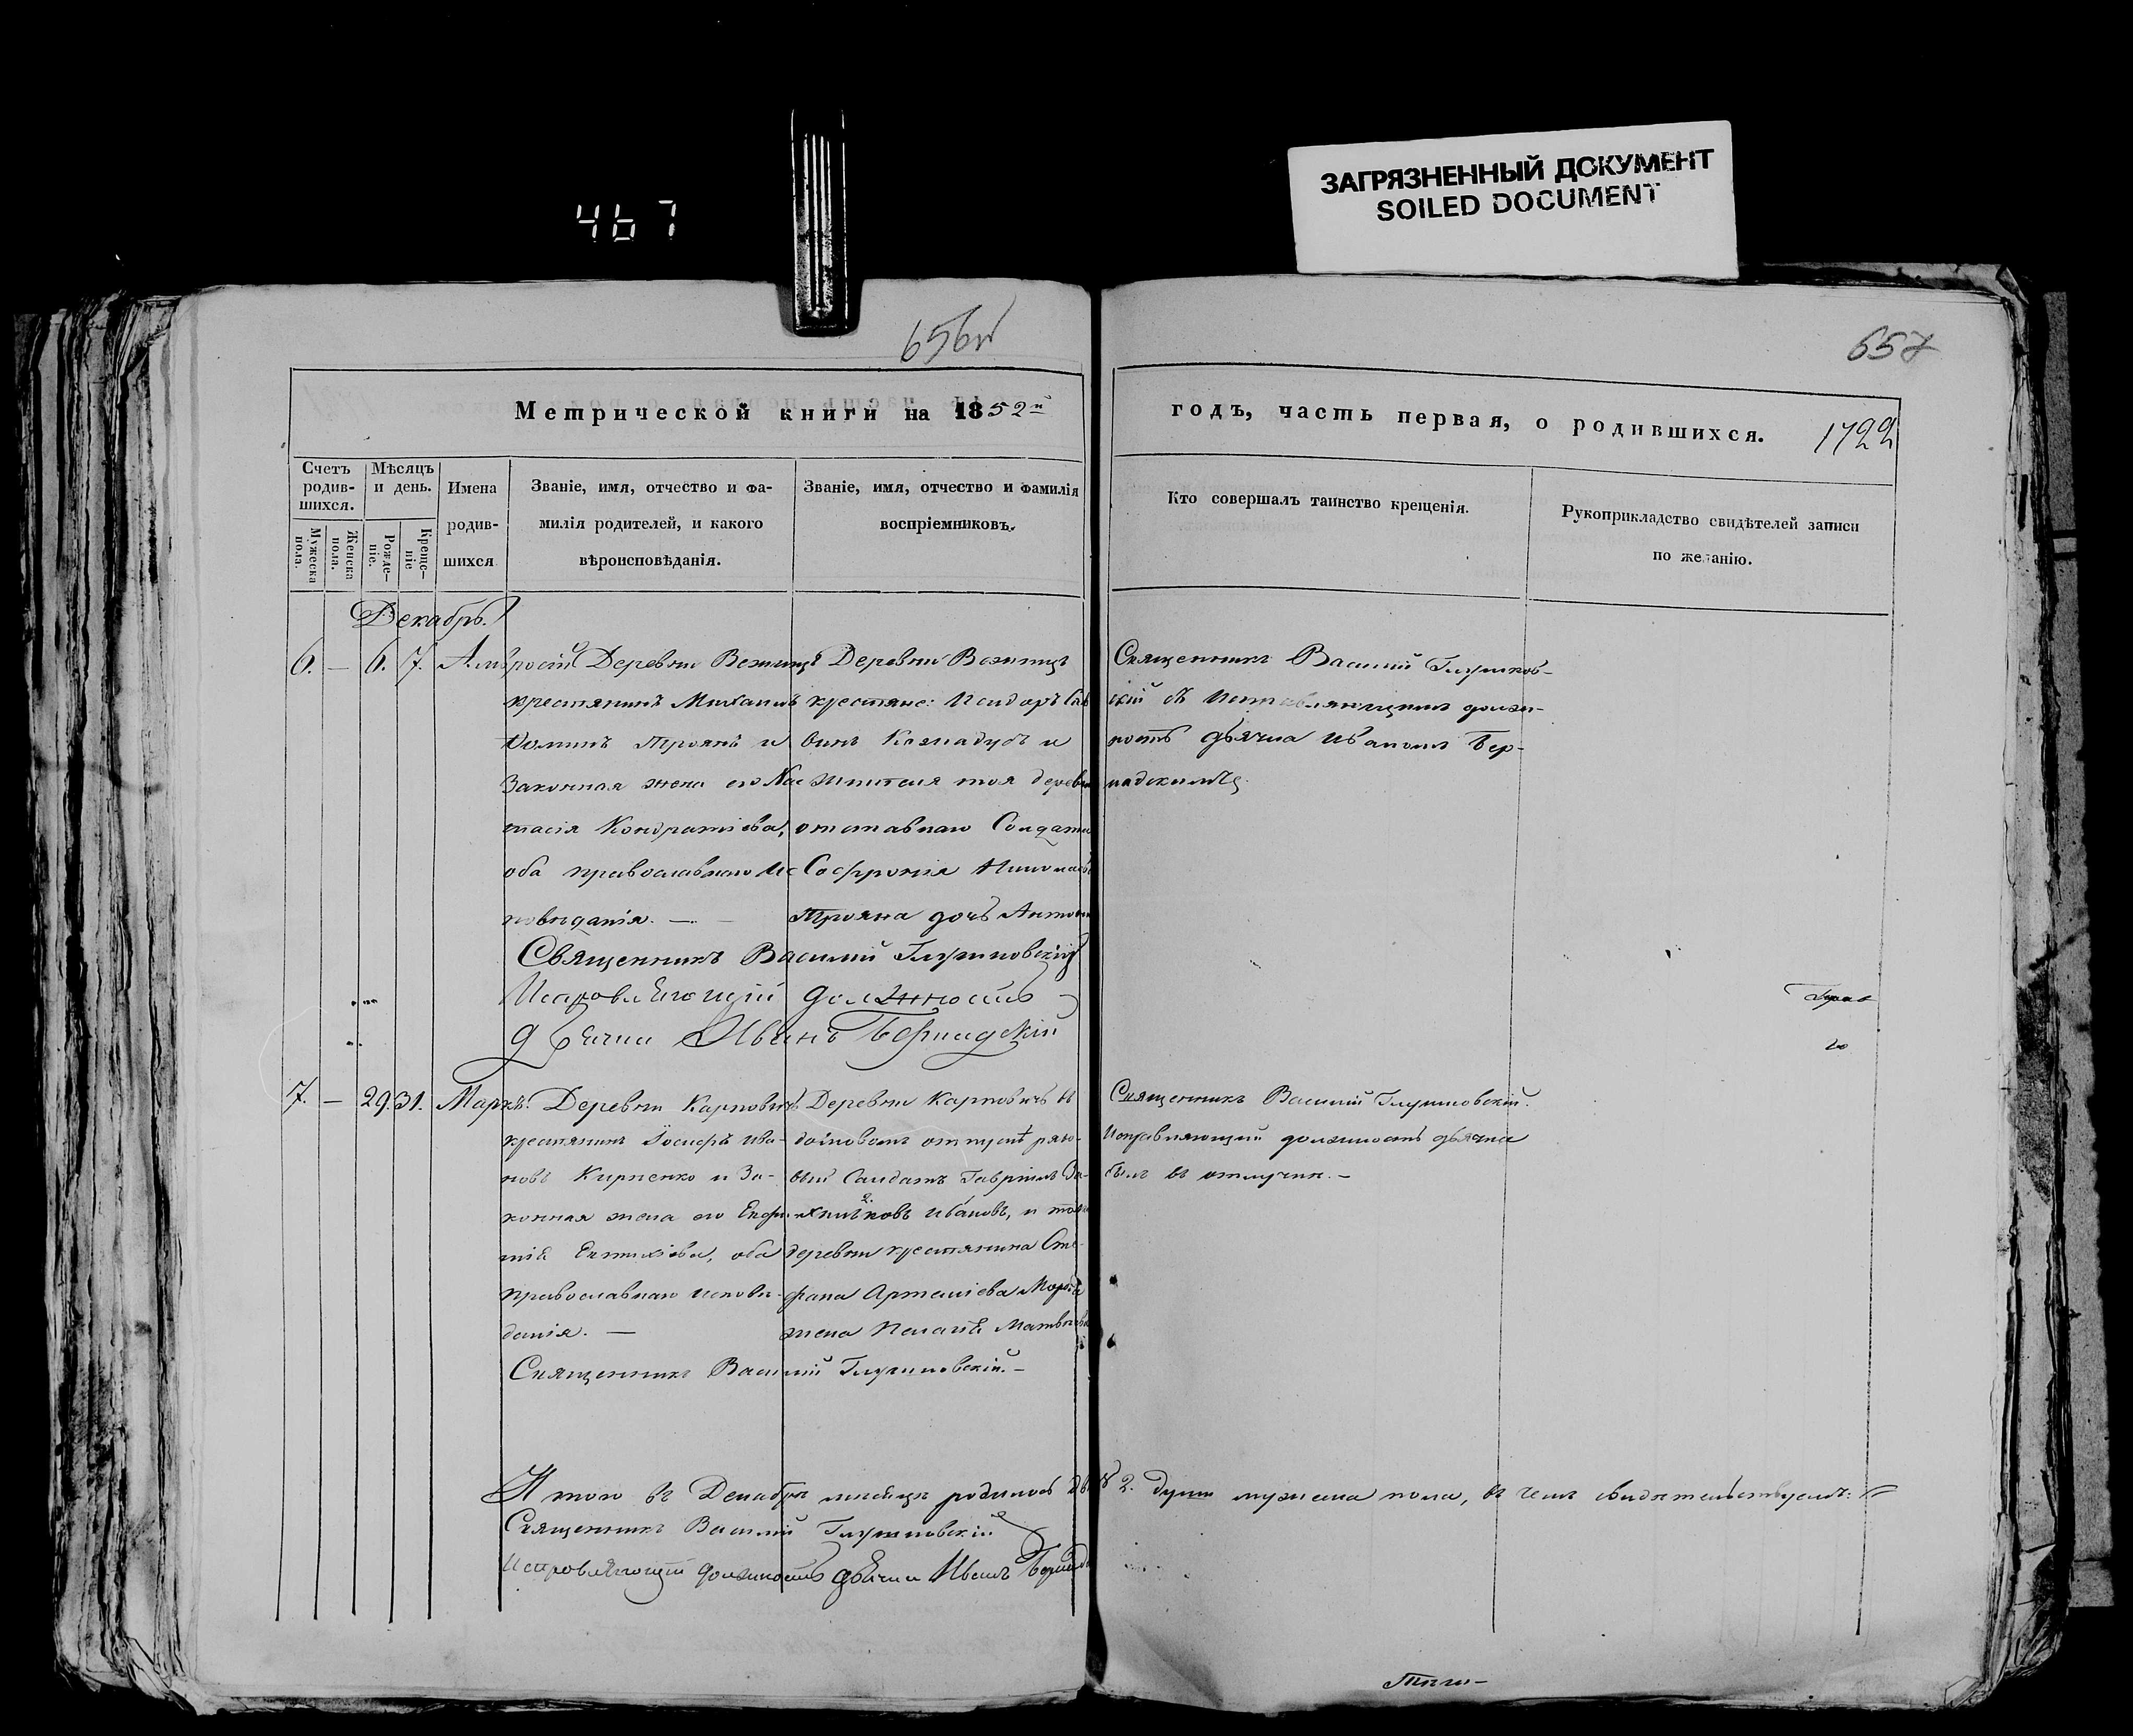 467
ЗАГРЯЗНЕННЫЙ ДОКУМЕНТ
SOILED DOCUMENT
657
Метрической книги на 1852й
годъ, часть первая, о родившихся.
1722
Счетъ родив-шихся.
Мужеска пола.
Женска пола.
Мѣсяцъ и день.
Рожде-ніе.
Креще-ніе
Имена
родив-
шихся
Званіе, имя, отчество и фа-
милія родителей, и какого
вѣроисповѣданія.
Званіе, имя, отчество и фамилія
воспріемниковъ.
Кто совершалъ таинство крещенія.
Рукоприкладство свидѣтелей записи
по желанію.
Декабрь.
6. — 6. 7. Амвросій
Деревни
крестянинъ Михаилъ
Троянъ и
Законная жена его Нас
тасія Кондратіева,
оба православнаго Ис
повѣданія. —
Деревни
крестяне: Исидоръ Сав
винъ и
тоя деревни
отставнаго Солдата
Софронія
Трояна дочь
Священникъ Василій Глушковскій
Исправляющій должность
дьячка Иванъ Бернадскій
Священникъ Василій Глушков-
скій съ Исправляющимъ долж-
ность дьячка Иваномъ Бер-
надскимъ
7. — 29. 31. Маркъ.
Деревни Карповичъ
крестянинъ Іосифъ Ива-
новъ Кирпенко и За-
конная жена его Евфи-
мія Евтихіева, оба
православнаго исповѣ-
данія. —
Деревни Карповичъ в
отпускѣ рядо-
вый Солдатъ Гавріилъ
Ивановъ, и тоя
деревни крестянина Сте-
фана
жена Пелагія Матвѣева
Священникъ Василій Глушковскій. —
Священникъ Василій Глушковскій.
Исправляющій должность дьячка
былъ въ отлучки. —
Итого въ Декабрѣ мѣсяцѣ родилось двѣ 2. души мужеска пола, въ чемъ свидѣтельствуемъ:
Священникъ Василій Глушковскій
Исправляющій должность дьячка Иванъ Бернадс